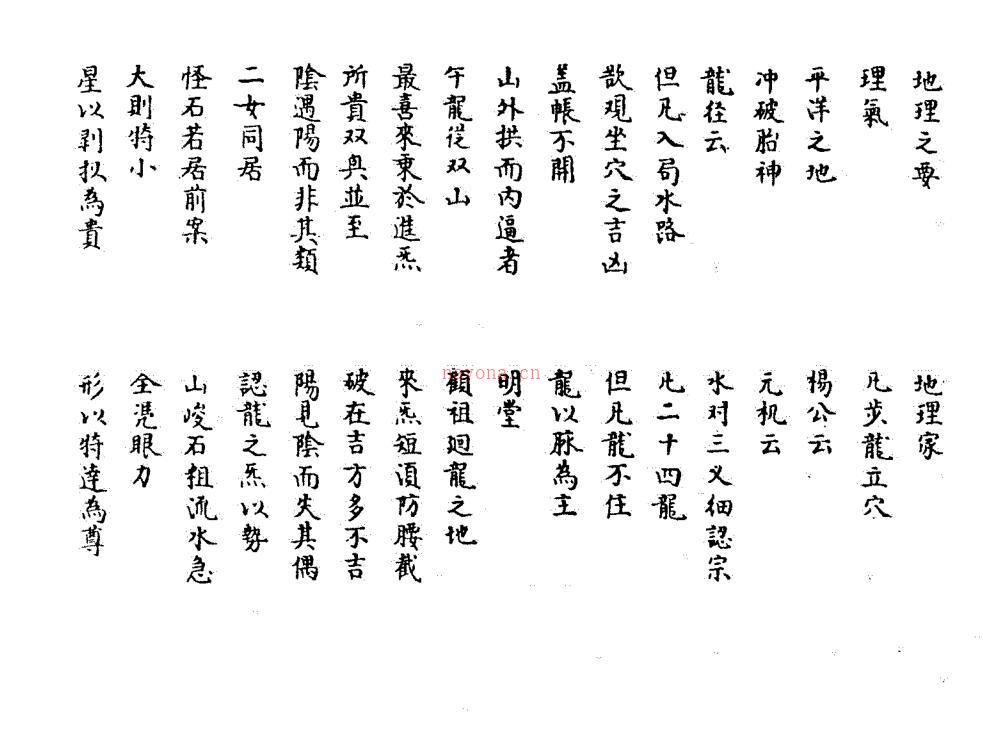 地理之要
地理家
理氣
凡步龍立穴
平洋之地
楊公云
冲破胎神
元机云
龍径云
水对三义细認宗
但凡入局水路
凡二十四龍
欲观坐穴之吉凶
但凡龍不住
盖帳不開
龍以脉為主
山外拱而内逼者
明堂
午龍從双山
顧祖廻龍之地
最喜來秉於進炁
來炁短須防腰截
所貴双奥並至
破在吉方多不吉
陰遇陽而非其類
陽見陰而失其偶
二女同居
認龍之炁以勢
怪石若居前案
山峻石粗流水急
大則特小
全凭眼力
星以剥换為貴
形以特達為尊
nayona.cn